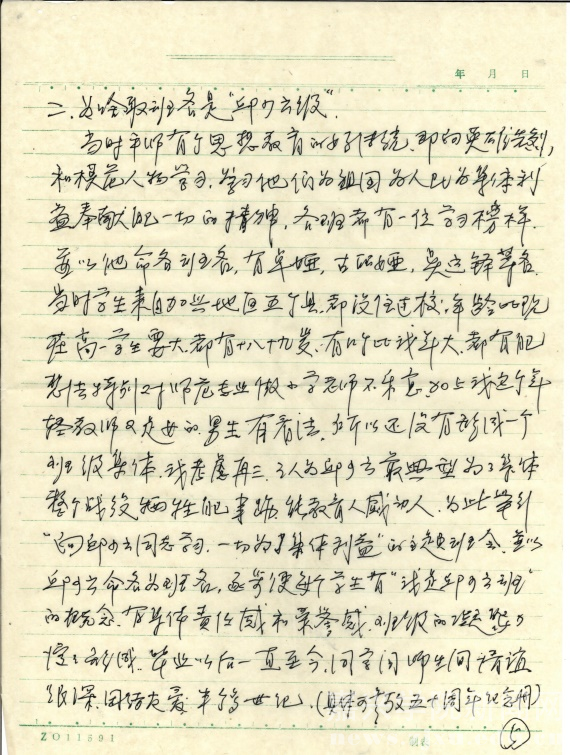 年 月 日
二、如何取班名是"邱少云级".
当时平师有个思想教育的好传统,即向英雄先烈,
和模范人物学习,学习他们为祖国为人民为集体利
益奉献自己一切的精神,各班都有一位学习榜样.
并以他命名班名,有卓娅,古丽娅,吴运铎等名.
当时学生来自加兴地区五个县,都没住过校,年龄比现
在高一学生要大,都有十八十九岁,有的比我年大,都有自己
想法特别对师范专业做小学老师不乐意,加上我这个年
轻教师又是女的,男生有看法,所以还没有形成一个
班级集体,我考虑再三,认为邱少云最典型为了集体
整个战役牺牲自己事迹,能教育人感动人,为此举行
"向邱少云同志学习,一切为了集体利益"的主题班会,并以
邱少云命名为班名,逐步使每个学生有"我是邱少云班"
的概念,有集体责任感和荣誉感,班级的凝聚力
慢慢形成,毕业以后一直至今,同学间师生间情谊
级深,团结友爱,半个世纪.(五十周年纪念册)
ZO11591
5